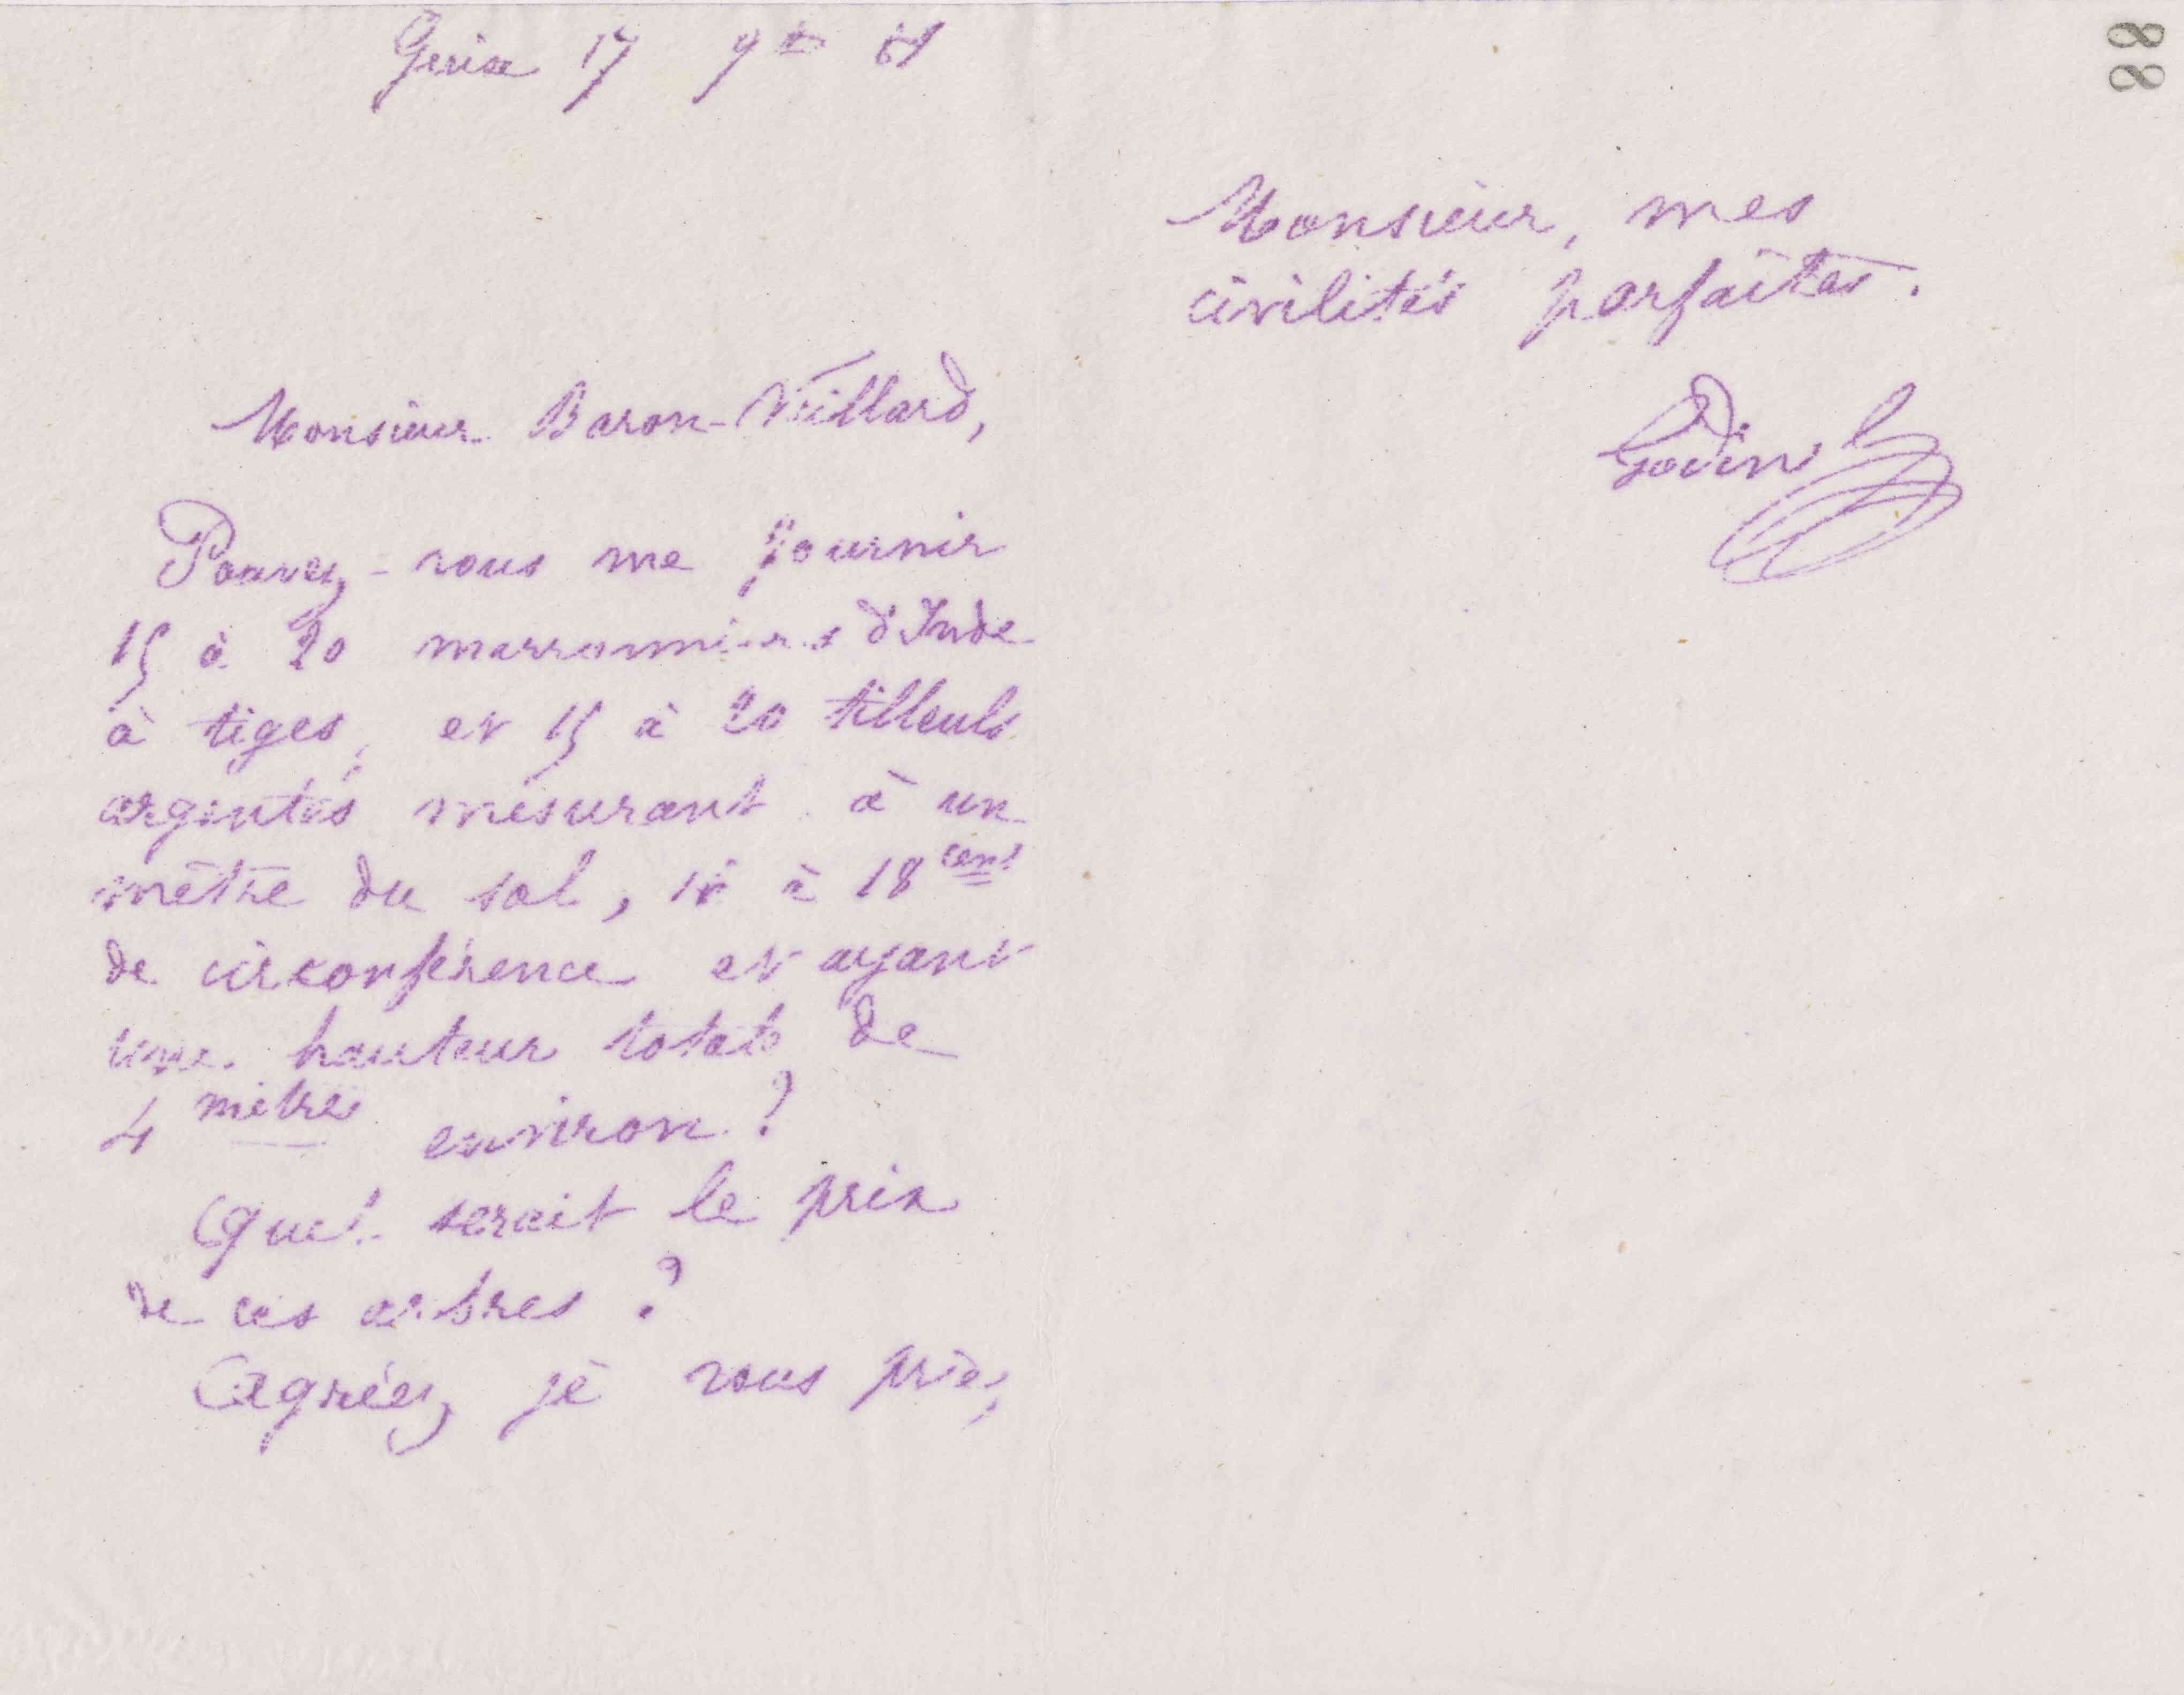 Guise 17 9bre 81
Monsieur Baron-Veillard,
Pouvez-vous me fournir
15 à 20 marronniers d'Inde
à tiges, et 15 à 20 tilleuls
argentés mesurant à un
mètre du sol, à 18 cent
de circonférence et ayant
une hauteur totale de
4 mètres environ ?
Quel serait le prix
de ces arbres ?
Agréez, je vous prie,
Monsieur, mes
civilités parfaites.
Godin
88